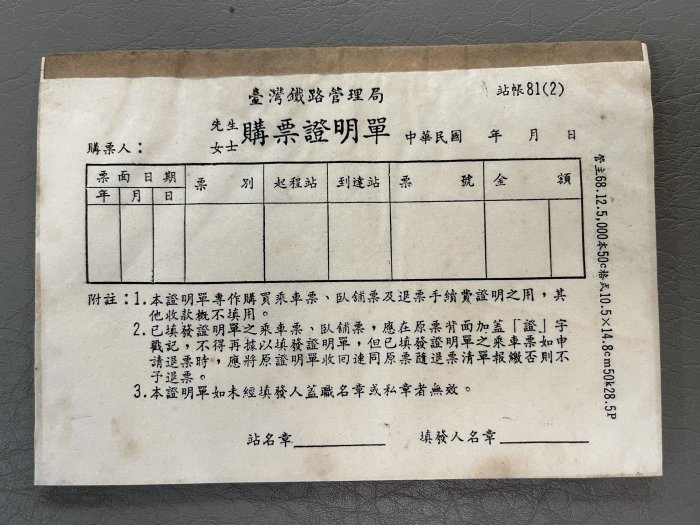 臺灣鐵路管理局
站帳81(2)
購票人：
先生
女士
購票證明單
中華民國　年　月　日
票面日期　票別　起程站　到達站　票號　金額
年　月　日
附註：1.本證明單專作購買乘車票、臥鋪票及退票手續費證明之用，其
他收款概不填用。
2.已填發證明單之乘車票、臥鋪票，應在原票背面加蓋「證」字
戳記，不得再據以填發證明單，但已填發證明單之乘車票如申
請退票時，應將原證明單收回連同原票隨退票清單報繳否則不
予退票。
3.本證明單如未經填發人蓋職名章或私章者無效。
站名章　填發人名章
營主68.12.5,000本50c格式10.5×14.8cm50k28.5P